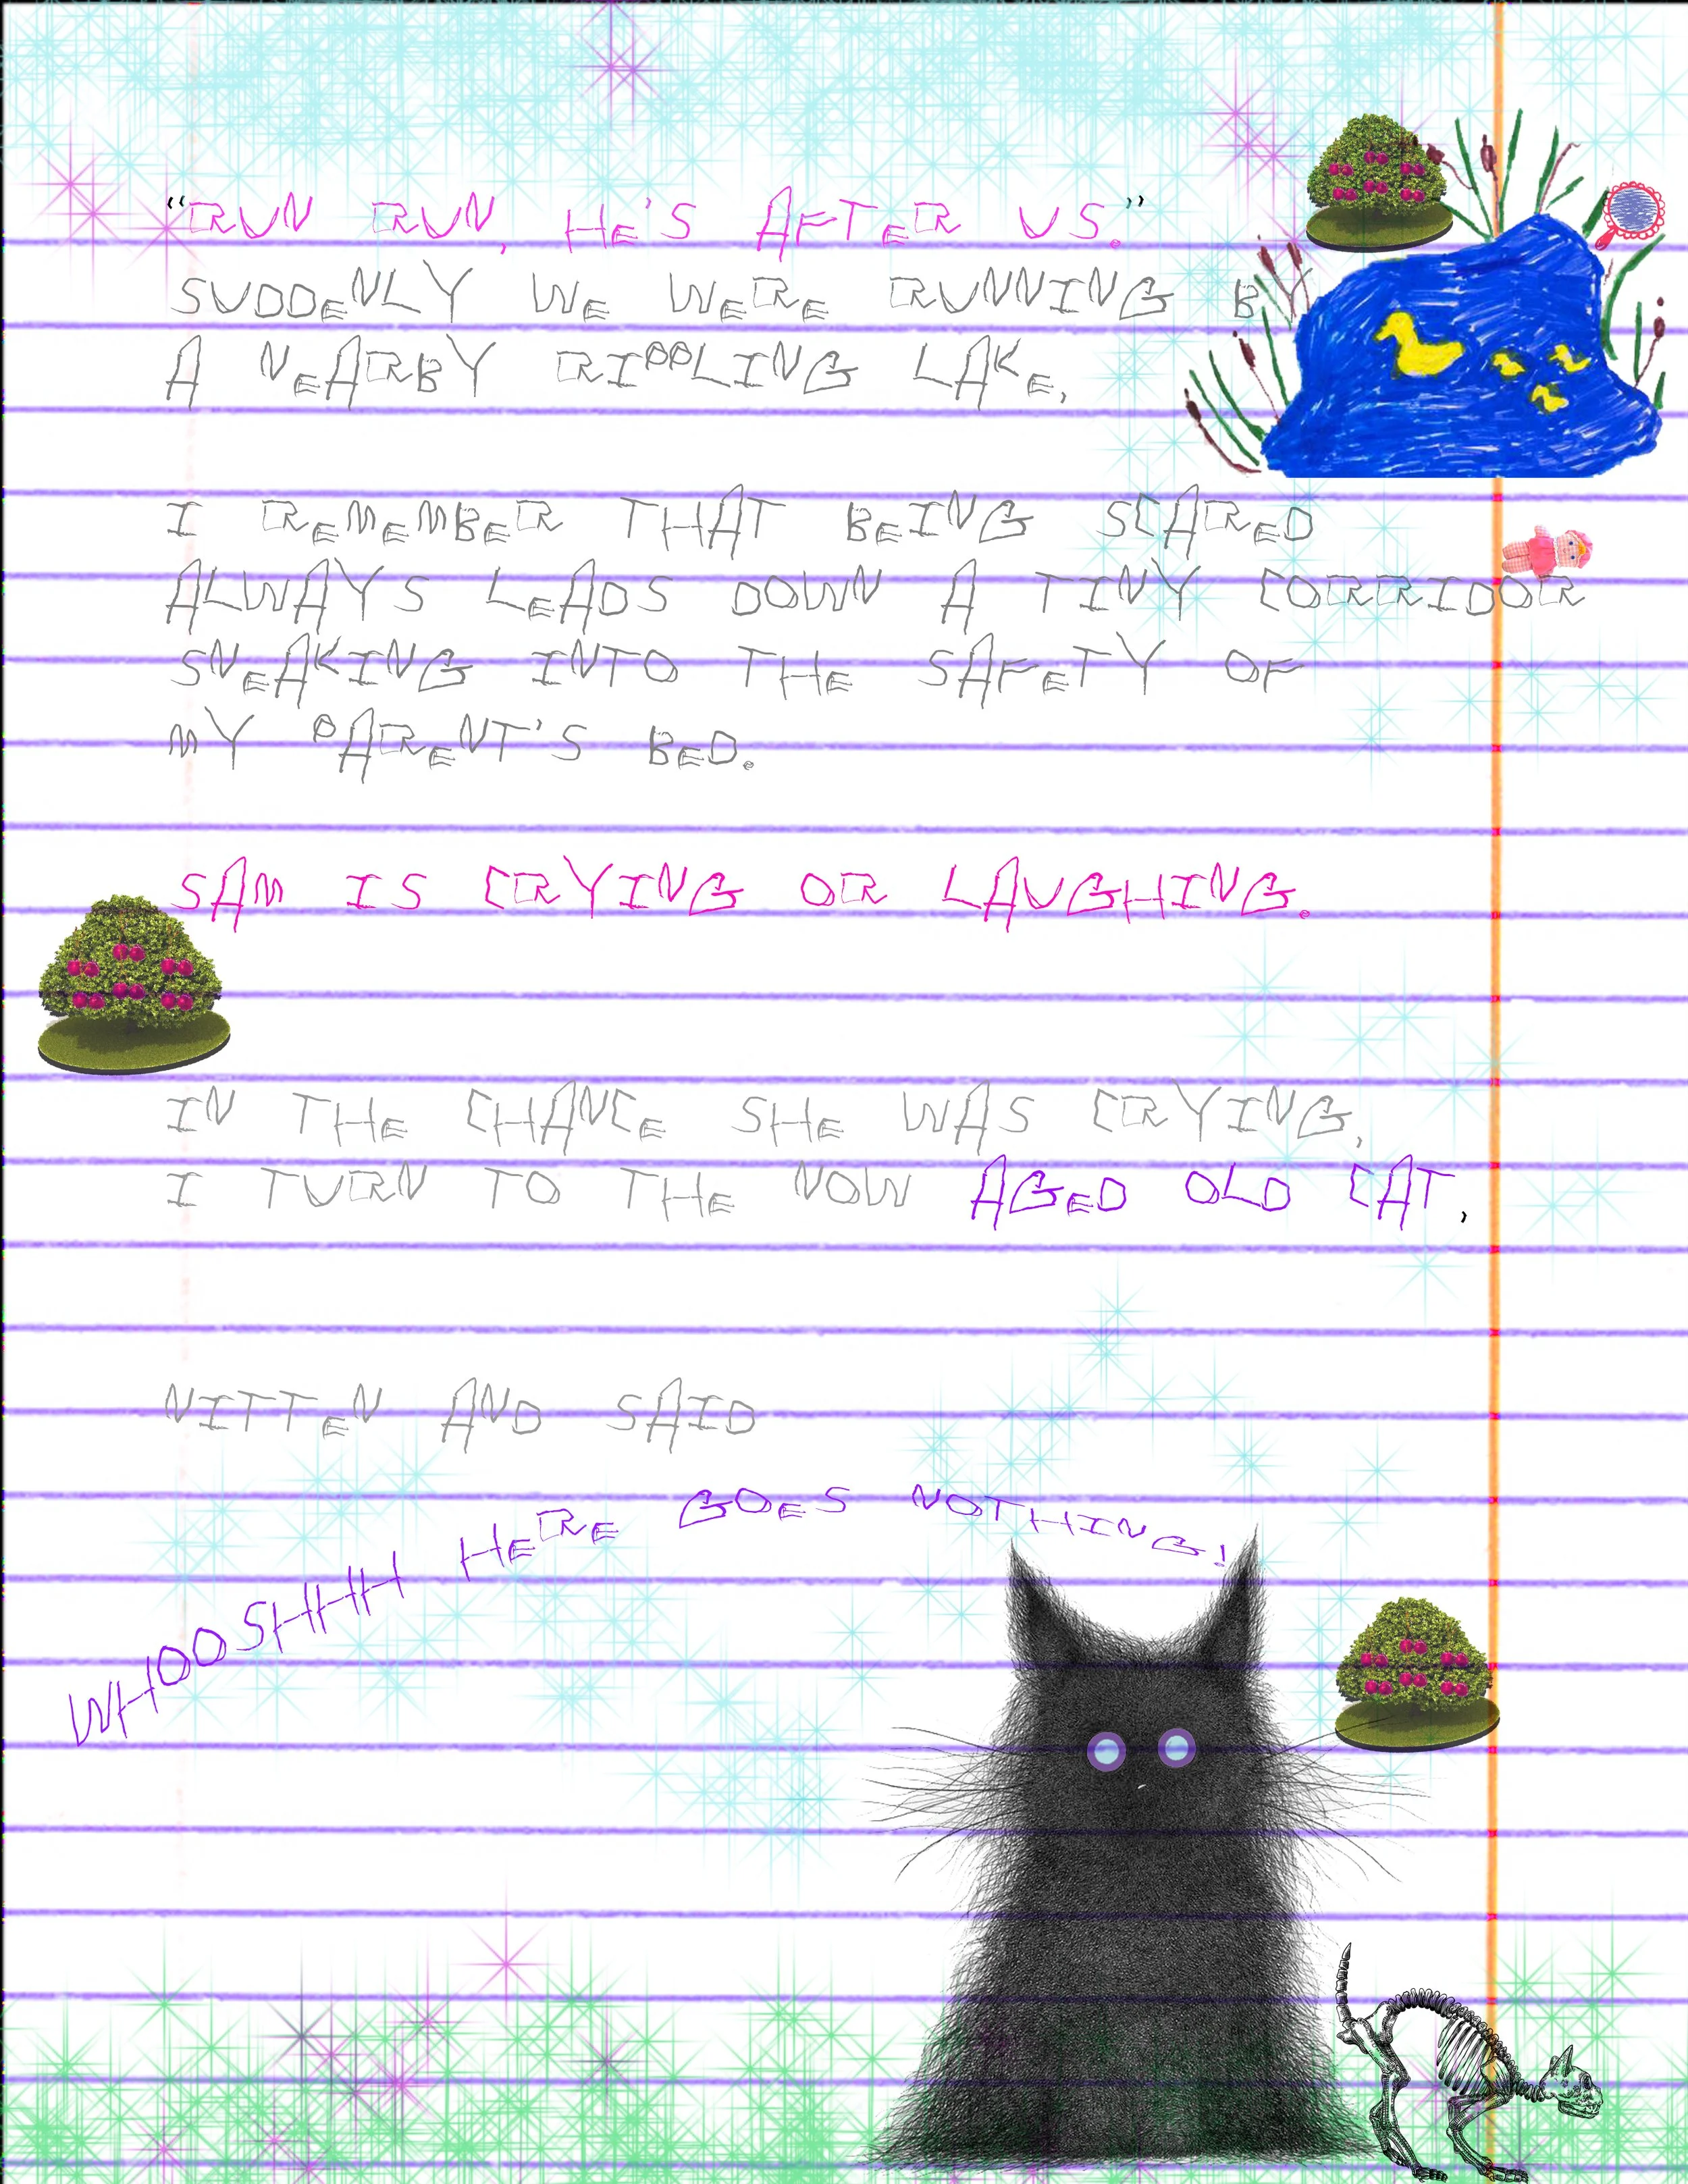 “RUN RUN, HE'S AFTER US.”
SUDDENLY WE WERE RUNNING BY
A NEARBY RIPPLING LAKE,
I REMEMBER THAT BEING SCARED
ALWAYS LEADS DOWN A TINY CORRIDOR
SNEAKING INTO THE SAFETY OF
MY PARENT'S BED.
SAM IS CRYING OR LAUGHING.
IN THE CHANCE SHE WAS CRYING,
I TURN TO THE NOW AGED OLD CAT,
NITTEN AND SAID
WHOOSHHH HERE GOES NOTHING!